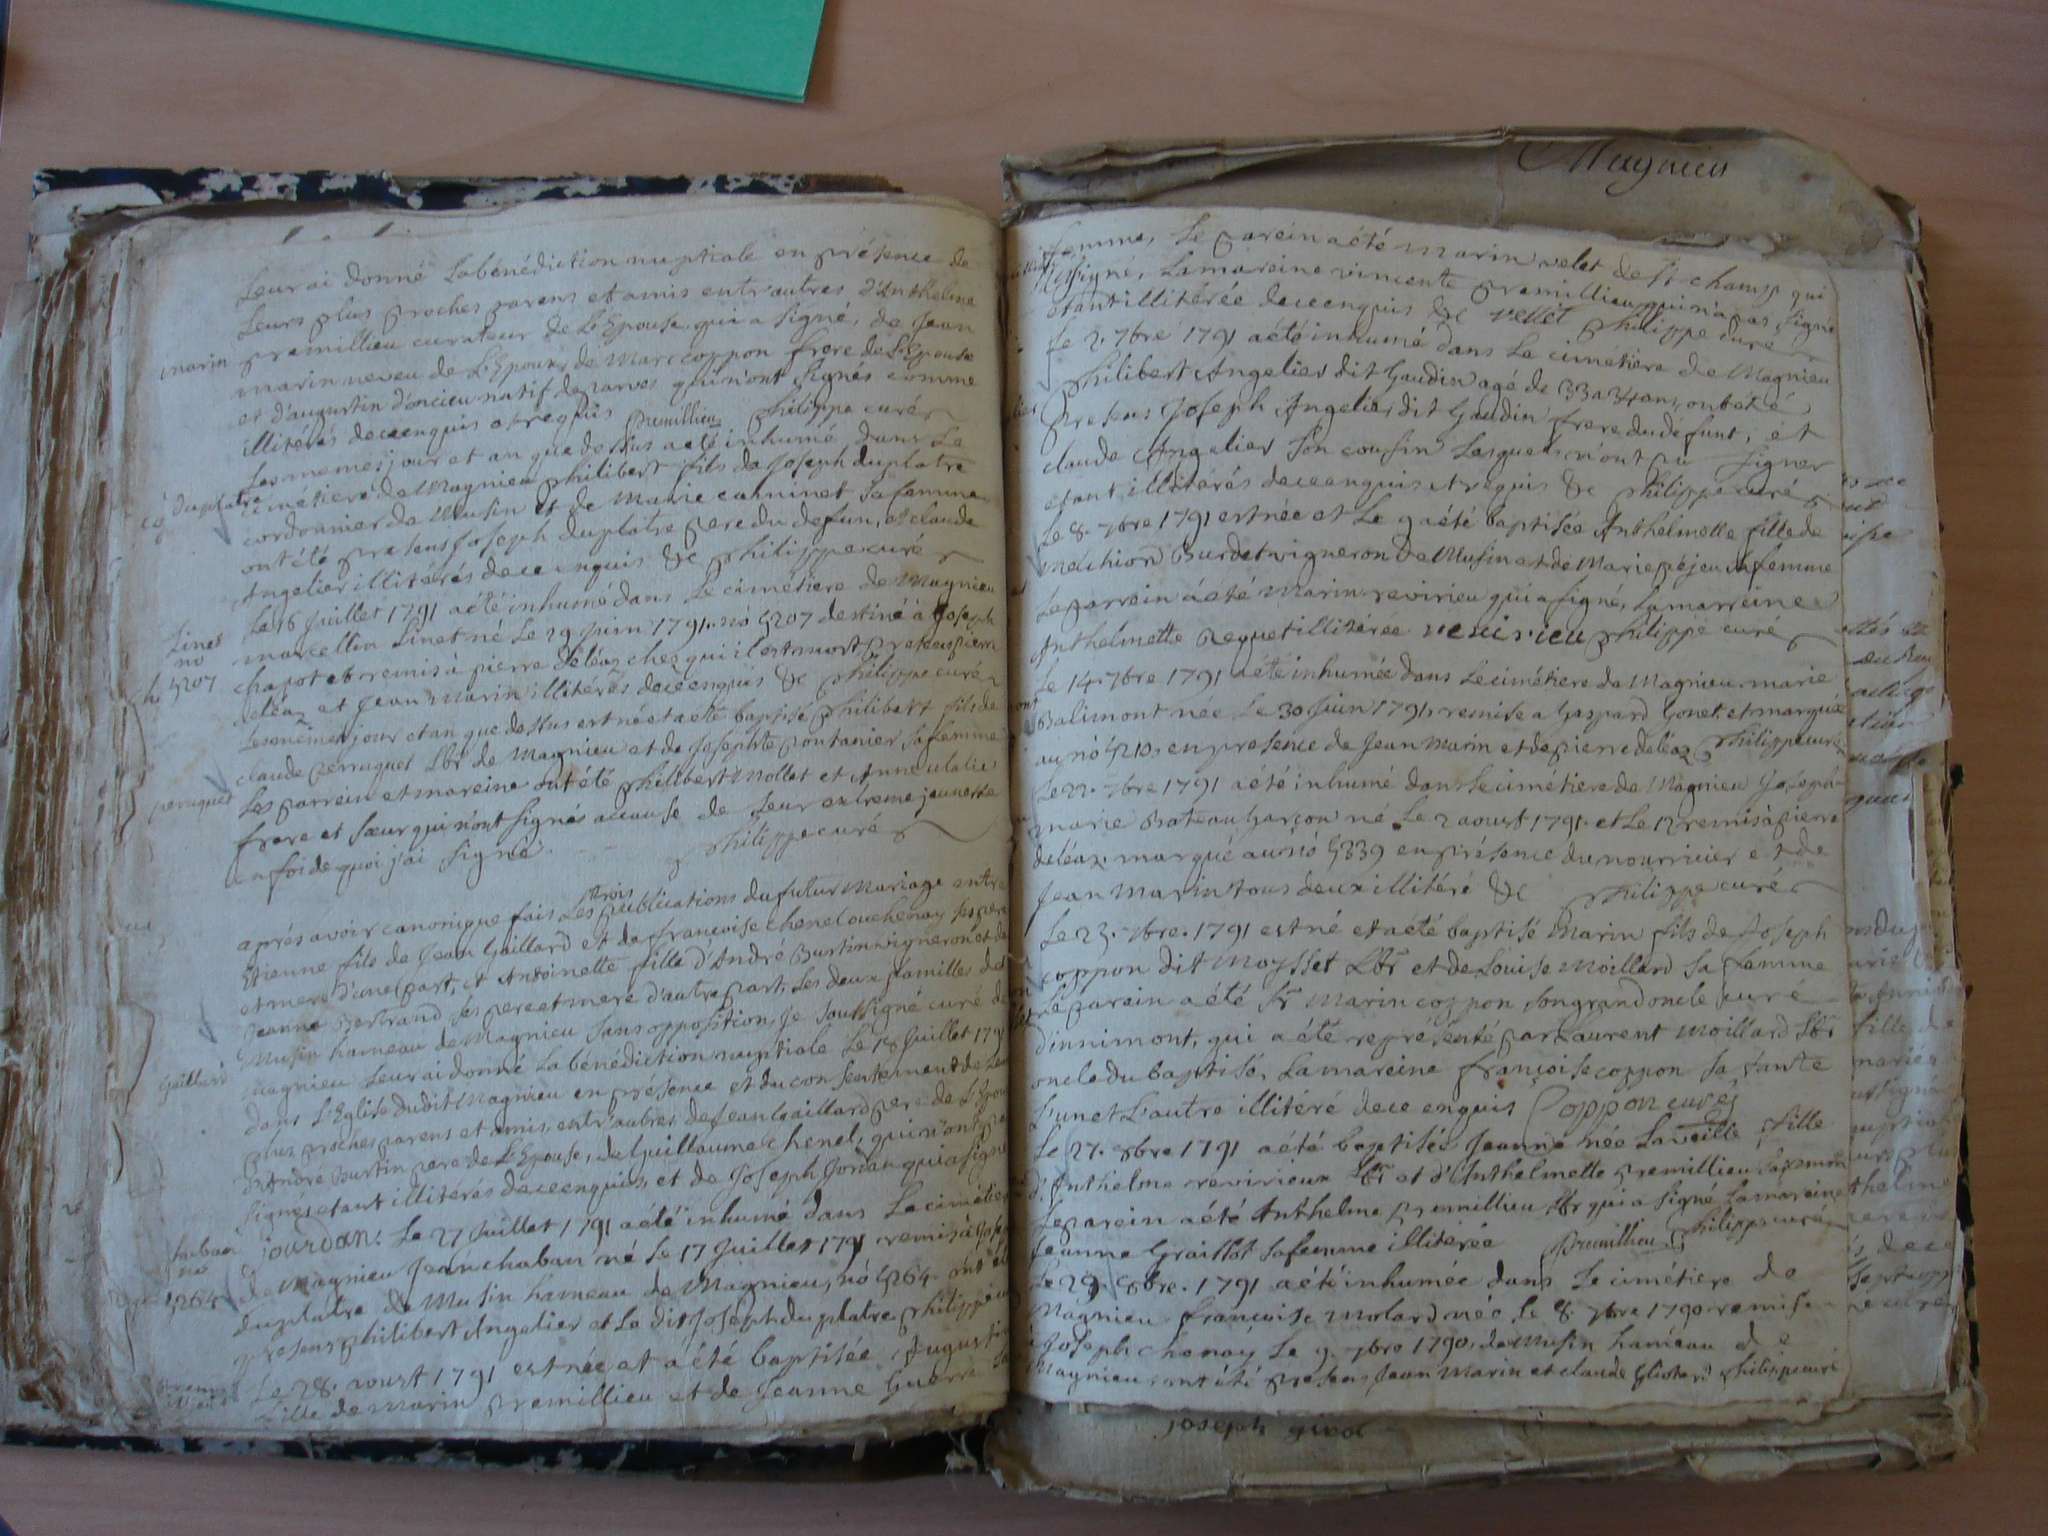 Leur ai donné la bénédiction nuptiale en présence de
Leurs plus proches parens et amis entr'autres d'Anthelme
premillieu curateur de L'Epouse qui a signé, de Jean
marin
marin neveu de L'Epoux, de Marc coppon frere de L'Epouse
et d'augustin d'oncieu natif de parves qui n'ont signés comme
illitérés de ce enquis et requis premillieu philippe curé
Les memes jour et an que dessus a été inhumé dans Le
duplatre
cimetiere de Magnieu philibert fils de Joseph duplatre
cordonnier de Musin et de Marie canninet sa femme
ont été presens Joseph duplatre pere du defun, et claude
Angelier illitérés de ce enquis &c philippe curé
Le 16 Juillet 1791 a été inhumé dans Le cimétiere de Magnieu
Linet
no
5207
marcellin Linet né Le 29 Juin 1791. no 5207 destiné à Joseph
chapot et remis à pierre déléaz chez qui il est mort presens pierre
deléaz et Jean Marin illitérés de ce enquis &c philippe curé
Les mêmes jour et an que dessus est né et a été baptisé philibert fils de
claude perruquet Lbr de Magnieu et de Josephte pontanier sa femme
peruquet
Les parrein et mareine ont été philibert Mollet et Anne eulalie
frere et sœur qui n'ont signés a cause de Leur extreme jeunesse
en foi de quoi j'ai signé philippe curé
aprés avoir canonique fais Les trois publications du futur Mariage entre
Etienne fils de Jean Gaillard et de francoise chenel ou chenay ses pere
et mere d'une part, et Antoinette fille d'André Burtin vigneron et de
Jeanne Bertrand ses pere et mere d'autre part, Les deux familles de
Musin hameau de Magnieu sans opposition, Je soussigné curé de
Gaillard
magnieu Leur ai donné La bénédiction nuptiale Le 18 Juillet 1791
dans L'Eglise dudit Magnieu en présence et du consentement de Leurs
plus proches parens et amis, entr'autres de Jean Gaillard pere de L'Epoux
d'André Burtin pere de L'Epouse, de Guillaume chenel, qui n'ont pas
signés etant illitérés de ce enquis, et de Joseph Jordan qui a signé
jourdan. Le 27 Juillet 1791 a été inhumé dans Le cimetiere
chaban
no
5264
de Magnieu Jean chaban né Le 17 Juillet 1791 remis à Joseph
duplatre de Musin hameau de Magnieu, no 5264 ont été
presens philibert Angelier et Le dit Joseph duplatre philippe
Le 28. aoust 1791 est née et a été baptisée Augustine
fille de Marin premillieu et de Jeanne Guerre sa
Magnieu
femme, Le parein a été Marin velet de St champ qui
a signé, La mareine vincente premillieu qui n'a pas signé
etant illitérée de ce enquis &c vellet philippe curé
Le 2. 7bre 1791 a été inhumé dans Le cimétiere de Magnieu
philibert Angelier dit Gaudin agé de 33 a 34 ans, ont été
presens Joseph Angelier dit Gaudin frere du defunt, et
claude Angelier son cousin Lesquels n'ont pu signer
etant illitérés de ce enquis et requis &c philippe curé
Le 8. 7bre 1791 est née et Le 9 a été baptisée Anthelmette fille de
melchior Burdet vigneron de Musin et de Marie péjeu sa femme
Le parrein a été Marin revirieu qui a signé, La marreine
Anthelmette peguet illitérée revirieu philippe curé
Le 14. 7bre 1791 a été inhumée dans Le cimétiere de Magnieu marie
Balimont née Le 30 Juin 1791, remise a Gaspard Gonet et marquée
au no 5210, en presence de Jean Marin et de pierre deléaz philippe curé
Le 22. 7bre 1791 a été inhumé dans Le cimétiere de Magnieu Joseph
marie Bateau Garçon né Le 2 aoust 1791. et Le 12 remis à pierre
deléaz. marqué au no 5339 en présence du nourricier et de
Jean Marin tous deux illitéré &c philippe curé
Le 23. 7bre. 1791 est né et a été baptisé Marin fils de Joseph
coppon dit Moysset Lbr et de Louise Moillard sa femme
Le parein a été Sr Marin coppon son grand oncle curé
d'innimont, qui a été représenté par Laurent Moillard Lbr
oncle du baptisé, La mareine françoise coppon sa tante
L'un et L'autre illitéré de ce enquis Coppon curé
Le 27. 8bre 1791 a été baptisée Jeanne née La veille, fille
d'Anthelme revirieux Lbr et d'Anthelmette premillieu sa femme
Le parein a été Anthelme premillieu Lbr qui a signé La mareine
Jeanne Graillot sa femme illitérée premillieu philippe curé
Le 29. 8bre. 1791 a été inhumée dans Le cimétiere de
Magnieu francoise Molard née Le 8. 7bre 1790 remise
a Joseph chenay Le 9. 7bre 1790, de Musin hameau de
Magnieu ont été presens Jean Marin et claude philippe curé
joseph girod